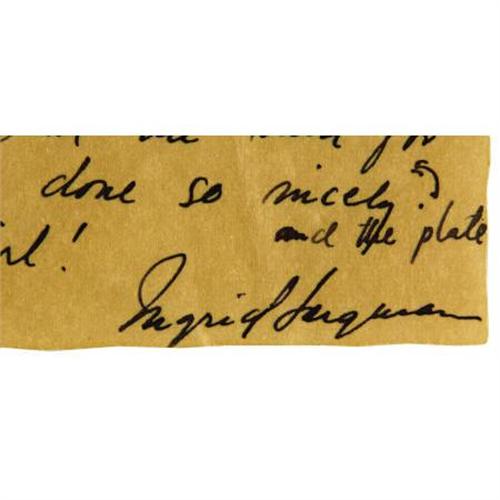 done so nicely?
and the plate
rl!
Ingrid Bergman